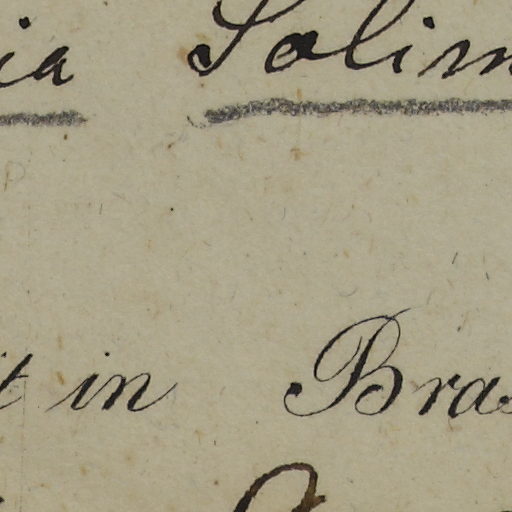 ia Solim
t in Bras